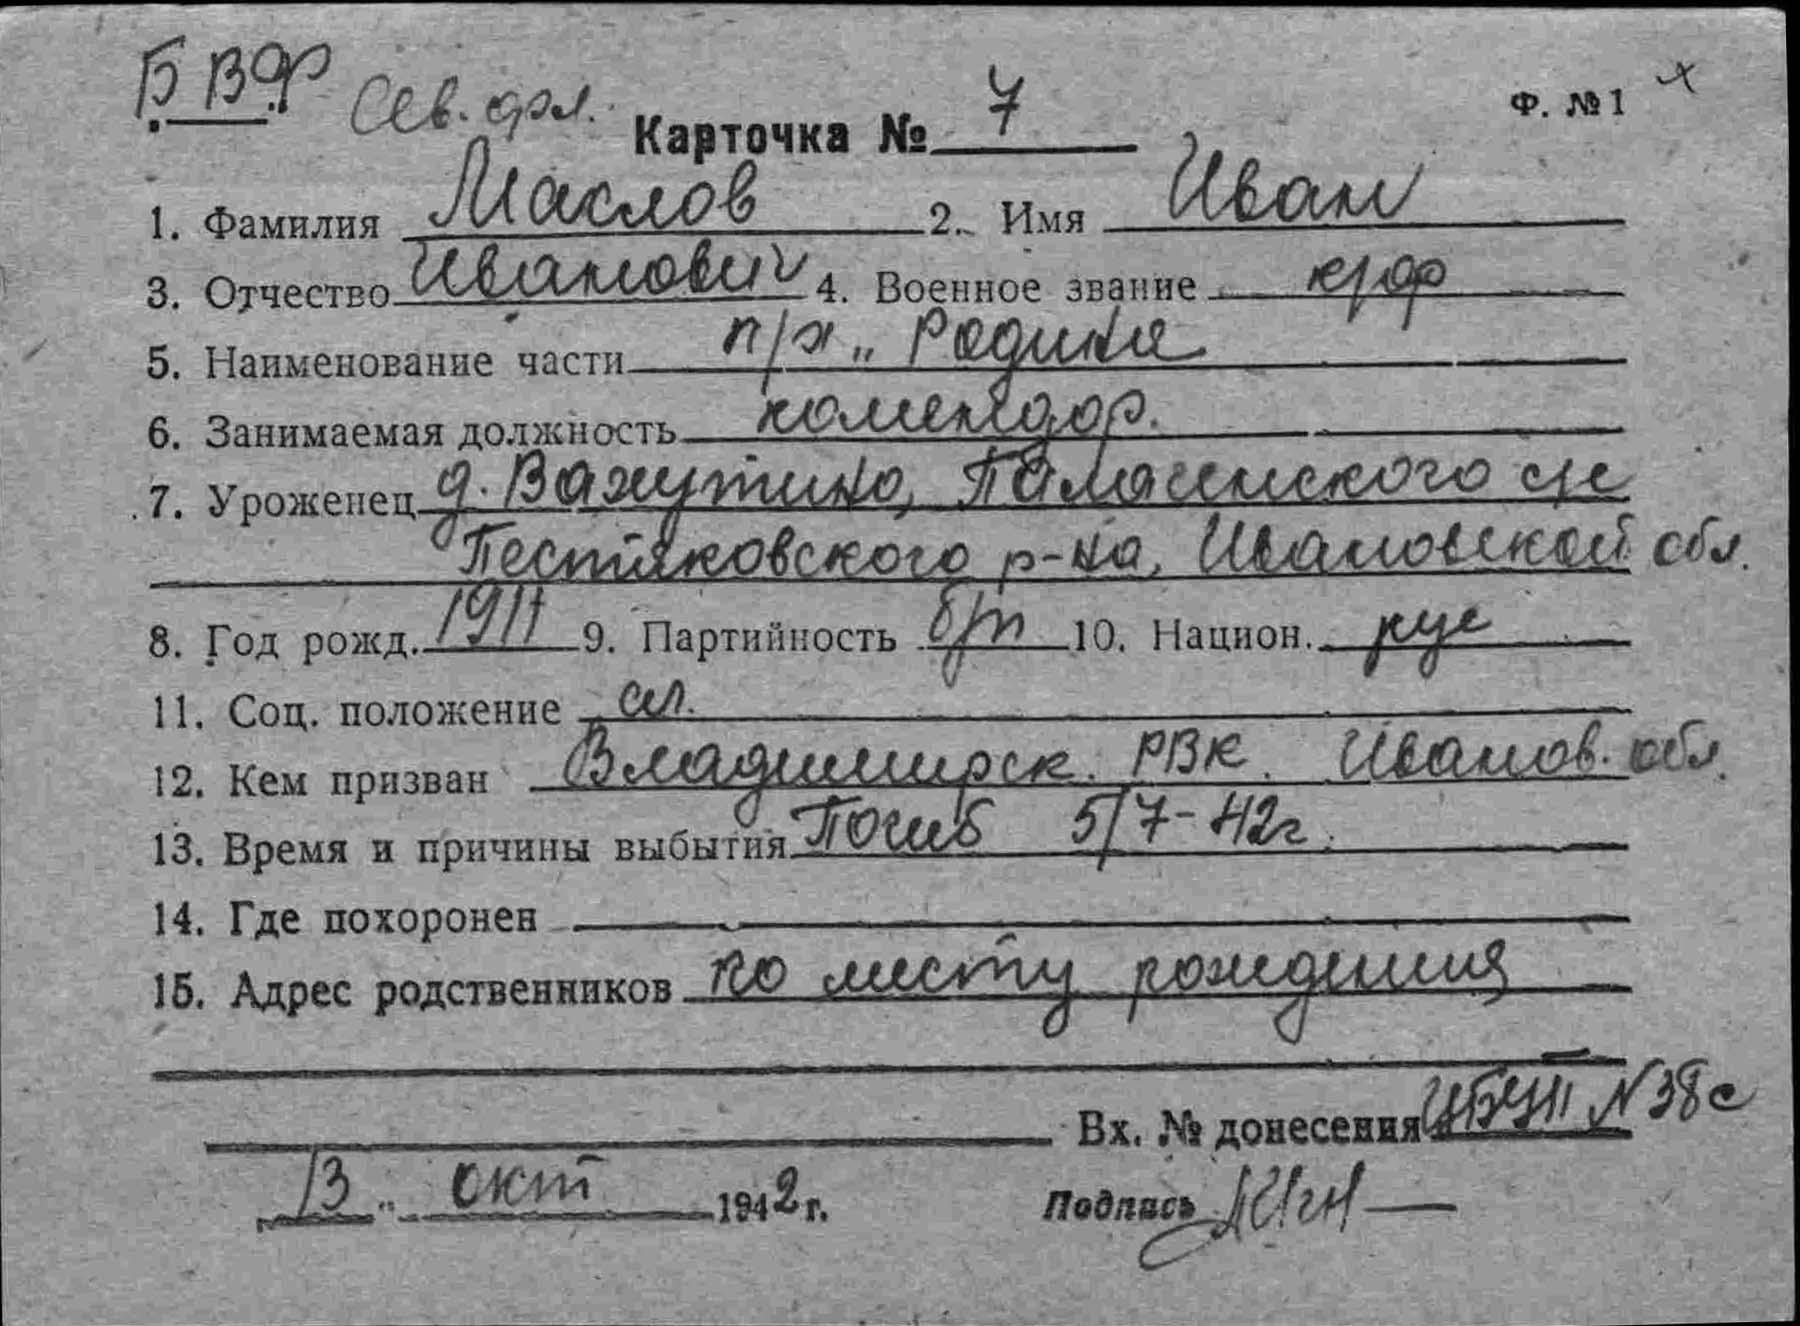 БВФ Сев. фл.
Ф. №1
Карточка № 7
1. Фамилия Маслов 2. Имя Иван
3. Отчество Иванович 4. Военное звание к/ф
5. Наименование части п/х „Родина
6. Занимаемая должность комендор.
7. Уроженец д. Важутино, с/с
Пестяковского р-на, Ивановской обл.
8. Год рожд. 1911 9. Партийность б/п 10. Национ. рус
11. Соц. положение сл.
12. Кем призван Владимирск. РВК. Иванов. обл.
13. Время и причины выбытия Погиб 5/7-42г.
14. Где похоронен
15. Адрес родственников по месту рождения
Вх. № донесения №38с
„13„ окт 1942 г.
Подпись